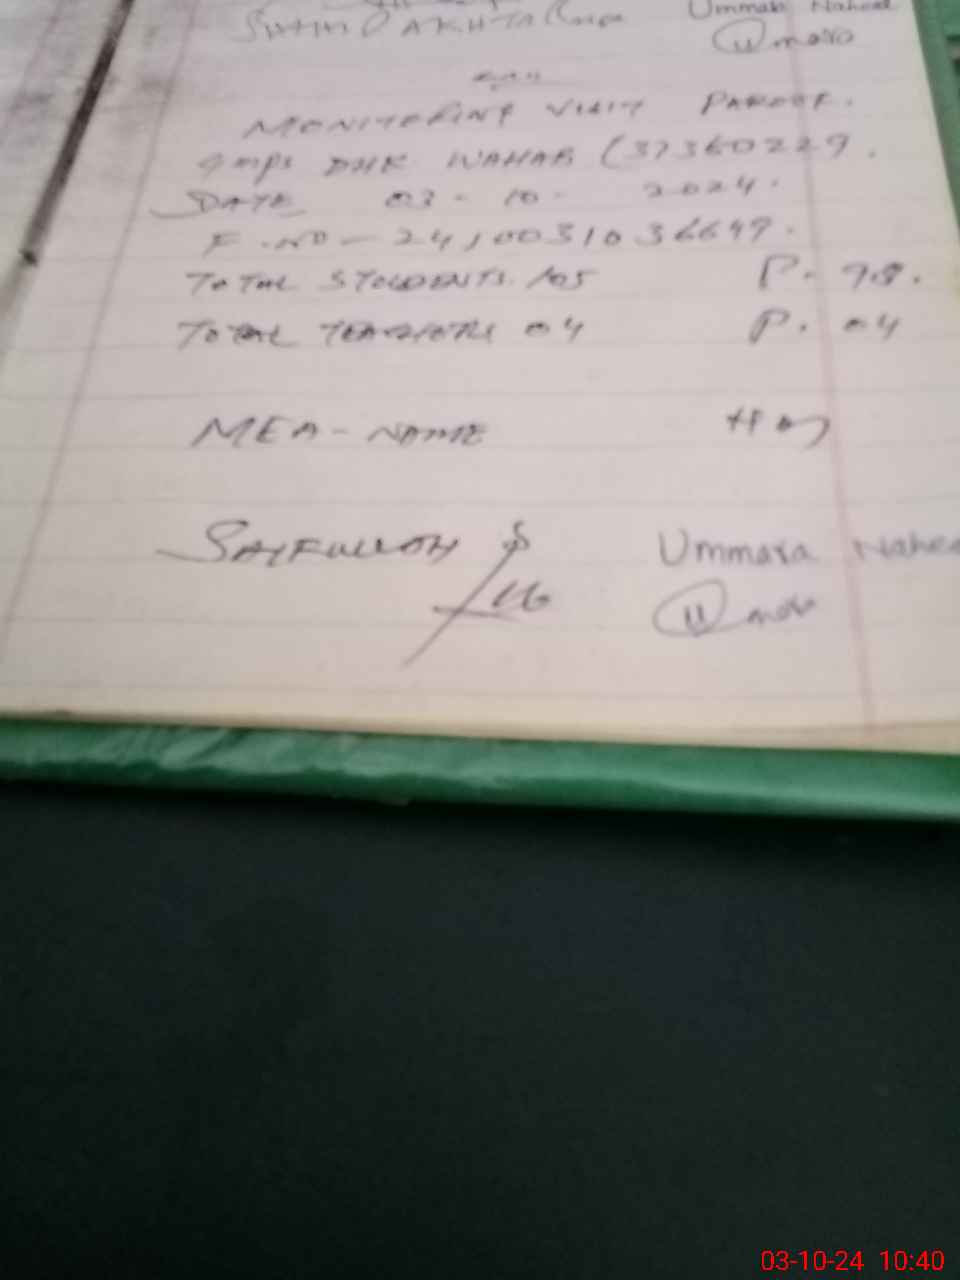 Ummara Naheed
Umara
MONITORING VISIT PAROOF.
GMPS DHK WAHAB (37360229.
DATE 03-10-2024.
F.NO-2410031036649.
TOTAL STOUDENTS. 105 P. 98.
TOTAL TEACHERS 04 P. 04
MEA-NAME
SAIFULLAH Ummara Nahee
Umara
03-10-24 10:40